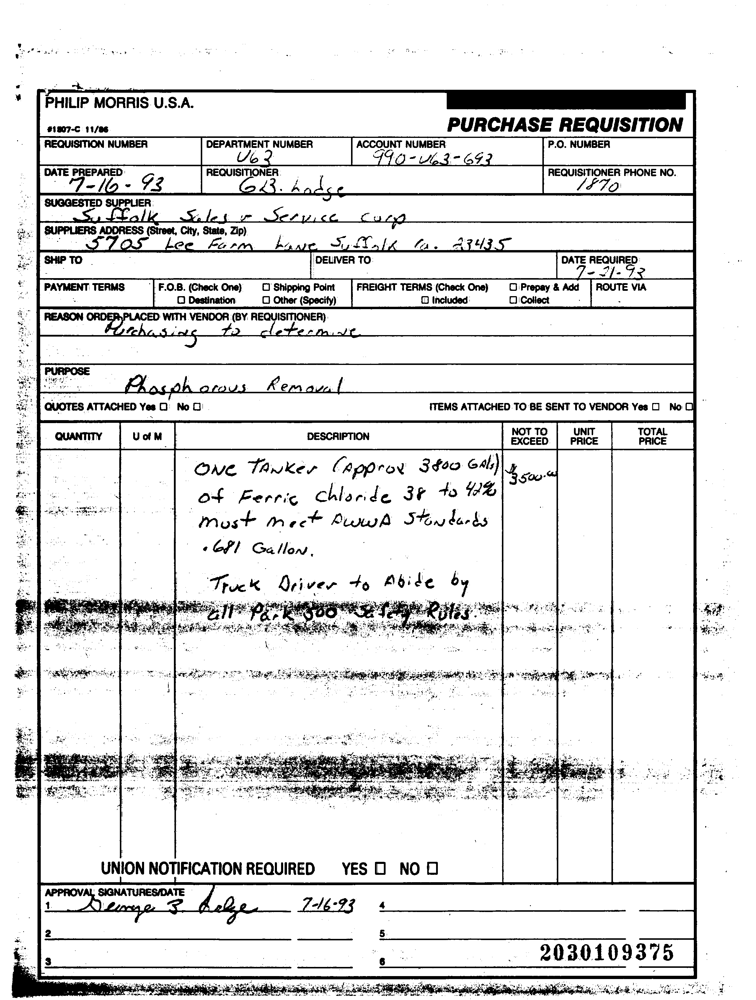 PHILIP MORRIS U.S.A.
#1807-C 11/86
PURCHASE REQUISITION
REQUISITION NUMBER DEPARTMENT NUMBER ACCOUNT NUMBER P.O. NUMBER
U63 990-U63-693
DATE PREPARED REQUISITIONER REQUISITIONER PHONE NO.
7-16-93 G.B. Lodge 1870
SUGGESTED SUPPLIER
Suffolk Sales & Service Corp
SUPPLIERS ADDRESS (Street, City, State, Zip)
5705 Lee Farm Lane Suffolk Va. 23435
SHIP TO DELIVER TO DATE REQUIRED
7-21-93
PAYMENT TERMS F.O.B. (Check One) ☐ Shipping Point FREIGHT TERMS (Check One) ☐ Prepay & Add ROUTE VIA
☐ Destination ☐ Other (Specify) ☐ Included ☐ Collect
REASON ORDER PLACED WITH VENDOR (BY REQUISITIONER)
Purchasing to determine
PURPOSE
Phosphorous Removal
QUOTES ATTACHED Yes ☐ No ☐ ITEMS ATTACHED TO BE SENT TO VENDOR Yes ☐ No ☐
QUANTITY U of M DESCRIPTION NOT TO EXCEED UNIT PRICE TOTAL PRICE
ONE TANKER (Approx 3800 GALs) $3500.00
of Ferric Chloride 38 to 42%
must meet AWWA Standards
.681 Gallon.
Truck Driver to Abide by
all Park 500 Safety Rules
UNION NOTIFICATION REQUIRED YES ☐ NO ☐
APPROVAL SIGNATURES/DATE
1 George B. Lodge 7-16-93 4
2 5
3 6
2030109375